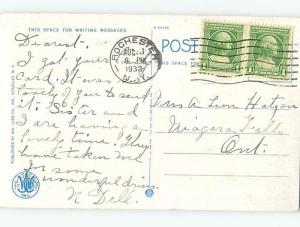 THIS SPACE FOR WRITING MESSAGES.
POST
ROCHESTER
AUG 3
6 PM
1932
N.Y.
Dearest.
I got your
card. It was
lovely of you to send
it. Sister and
I are having a
lovely time. They
have taken me
for some
wonderful drives.
N Dell.
Niagara Falls
Ont.